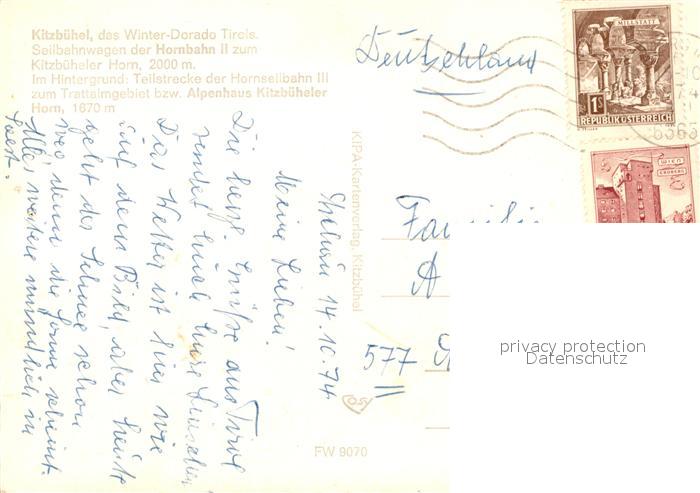 Kitzbühel, das Winter-Dorado Tirols.
Seilbahnwagen der Hornbahn II zum
Kitzbüheler Horn, 2000 m.
Im Hintergrund: Teilstrecke der Hornseilbahn III
zum Trattalmgebiet bzw. Alpenhaus Kitzbüheler
Horn, 1670 m
Deutschland
MILLSTATT
1S
REPUBLIK ÖSTERREICH
WIEN
ERDBERG
14.10.74
Meine Lieben!
Die herzl. Grüße aus Tirol
sendet Euch
Das Wetter ist hier wie
auf dem Bild, aber heute
geht der Schnee schon
weg, denn die Sonne scheint.
Alles weitere mündlich in
Soest.
KIPA-Kartenverlag, Kitzbühel
FW 9070
Familie
A
577
privacy protection
Datenschutz